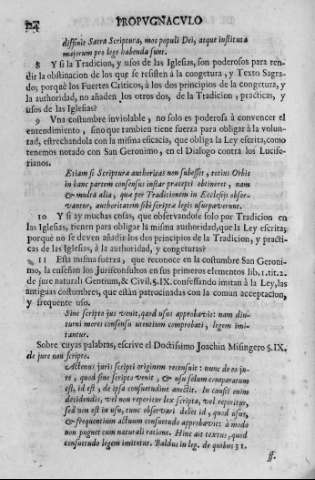 PROPVGNACVLO
difinit Sacra Scriptura, mos populi Dei, atque instituta
majorum pro lege habenda sunt.
8 Y si la Tradicion, y usos de las Iglesias, son poderosos para ren-
dir la obstinacion de los que se resisten à la congetura, y Texto Sagra-
do; porquè los Fuertes Criticos, à los dos principios de la congetura, y
la authoridad, no añaden los otros dos, de la Tradicion, practicas, y
usos de las Iglesias?
9 Vna costumbre inviolable, no solo es poderosa à convencer el
entendimiento, sino que tambien tiene fuerza para obligar à la volun-
tad, estrechandola con la misma eficacia, que obliga la Ley escrita, como
tenemos notado con San Geronimo, en el Dialogo contra los Lucife-
rianos.
Etiam si Scriptura authoritas non subesset, totius Orbis
in hanc partem consensus instar præcepti obtineret, nam
& multa alia, quæ per Traditionem in Ecclesijs obser-
vantur, authoritatem sibi scriptæ legis usurpaverunt.
10 Y si ay muchas cosas, que observandose solo por Tradicion en
las Iglesias, tienen para obligar la misma authoridad, que la Ley escrita;
porquè no se deven añadir los dos principios de la Tradicion, y practi-
cas de las Iglesias, à la authoridad, y congetura?
11 Esta misma fuerza, que reconoce en la costumbre San Geroni-
mo, la enseñan los Jurisconsultos en sus primeros elementos lib. 1. tit. 2.
de jure naturali Gentium, & Civil. §. IX. confessando imitan à la Ley, las
antiguas costumbres, que estàn patrocinadas con la comun acceptacion,
y frequente uso.
Sine scripto jus venit, quod usus approbavit: nam diu-
turni mores consensu utentium comprobati, legem imi-
tantur.
Sobre cuyas palabras, escrive el Doctissimo Joachin Misingero §. IX.
de jure non scripto.
Actenus juris scripti originem recensuit: nunc de eo ju-
re, quod sine scripto venit, & usu solum comparatum
est, id est, de ipsa consuetudine anectit. In causis enim
decidendis, vel non reperitur lex scripta, vel reperitur,
sed non est in usu, tunc observari debet id, quod usus,
& frequentium actuum consuetudo approbavit: à modo
non pugnet cum naturali ratione. Hinc ait textus, quod
consuetudo legem imitetur. Baldus in leg. de quibus 31.
ff.